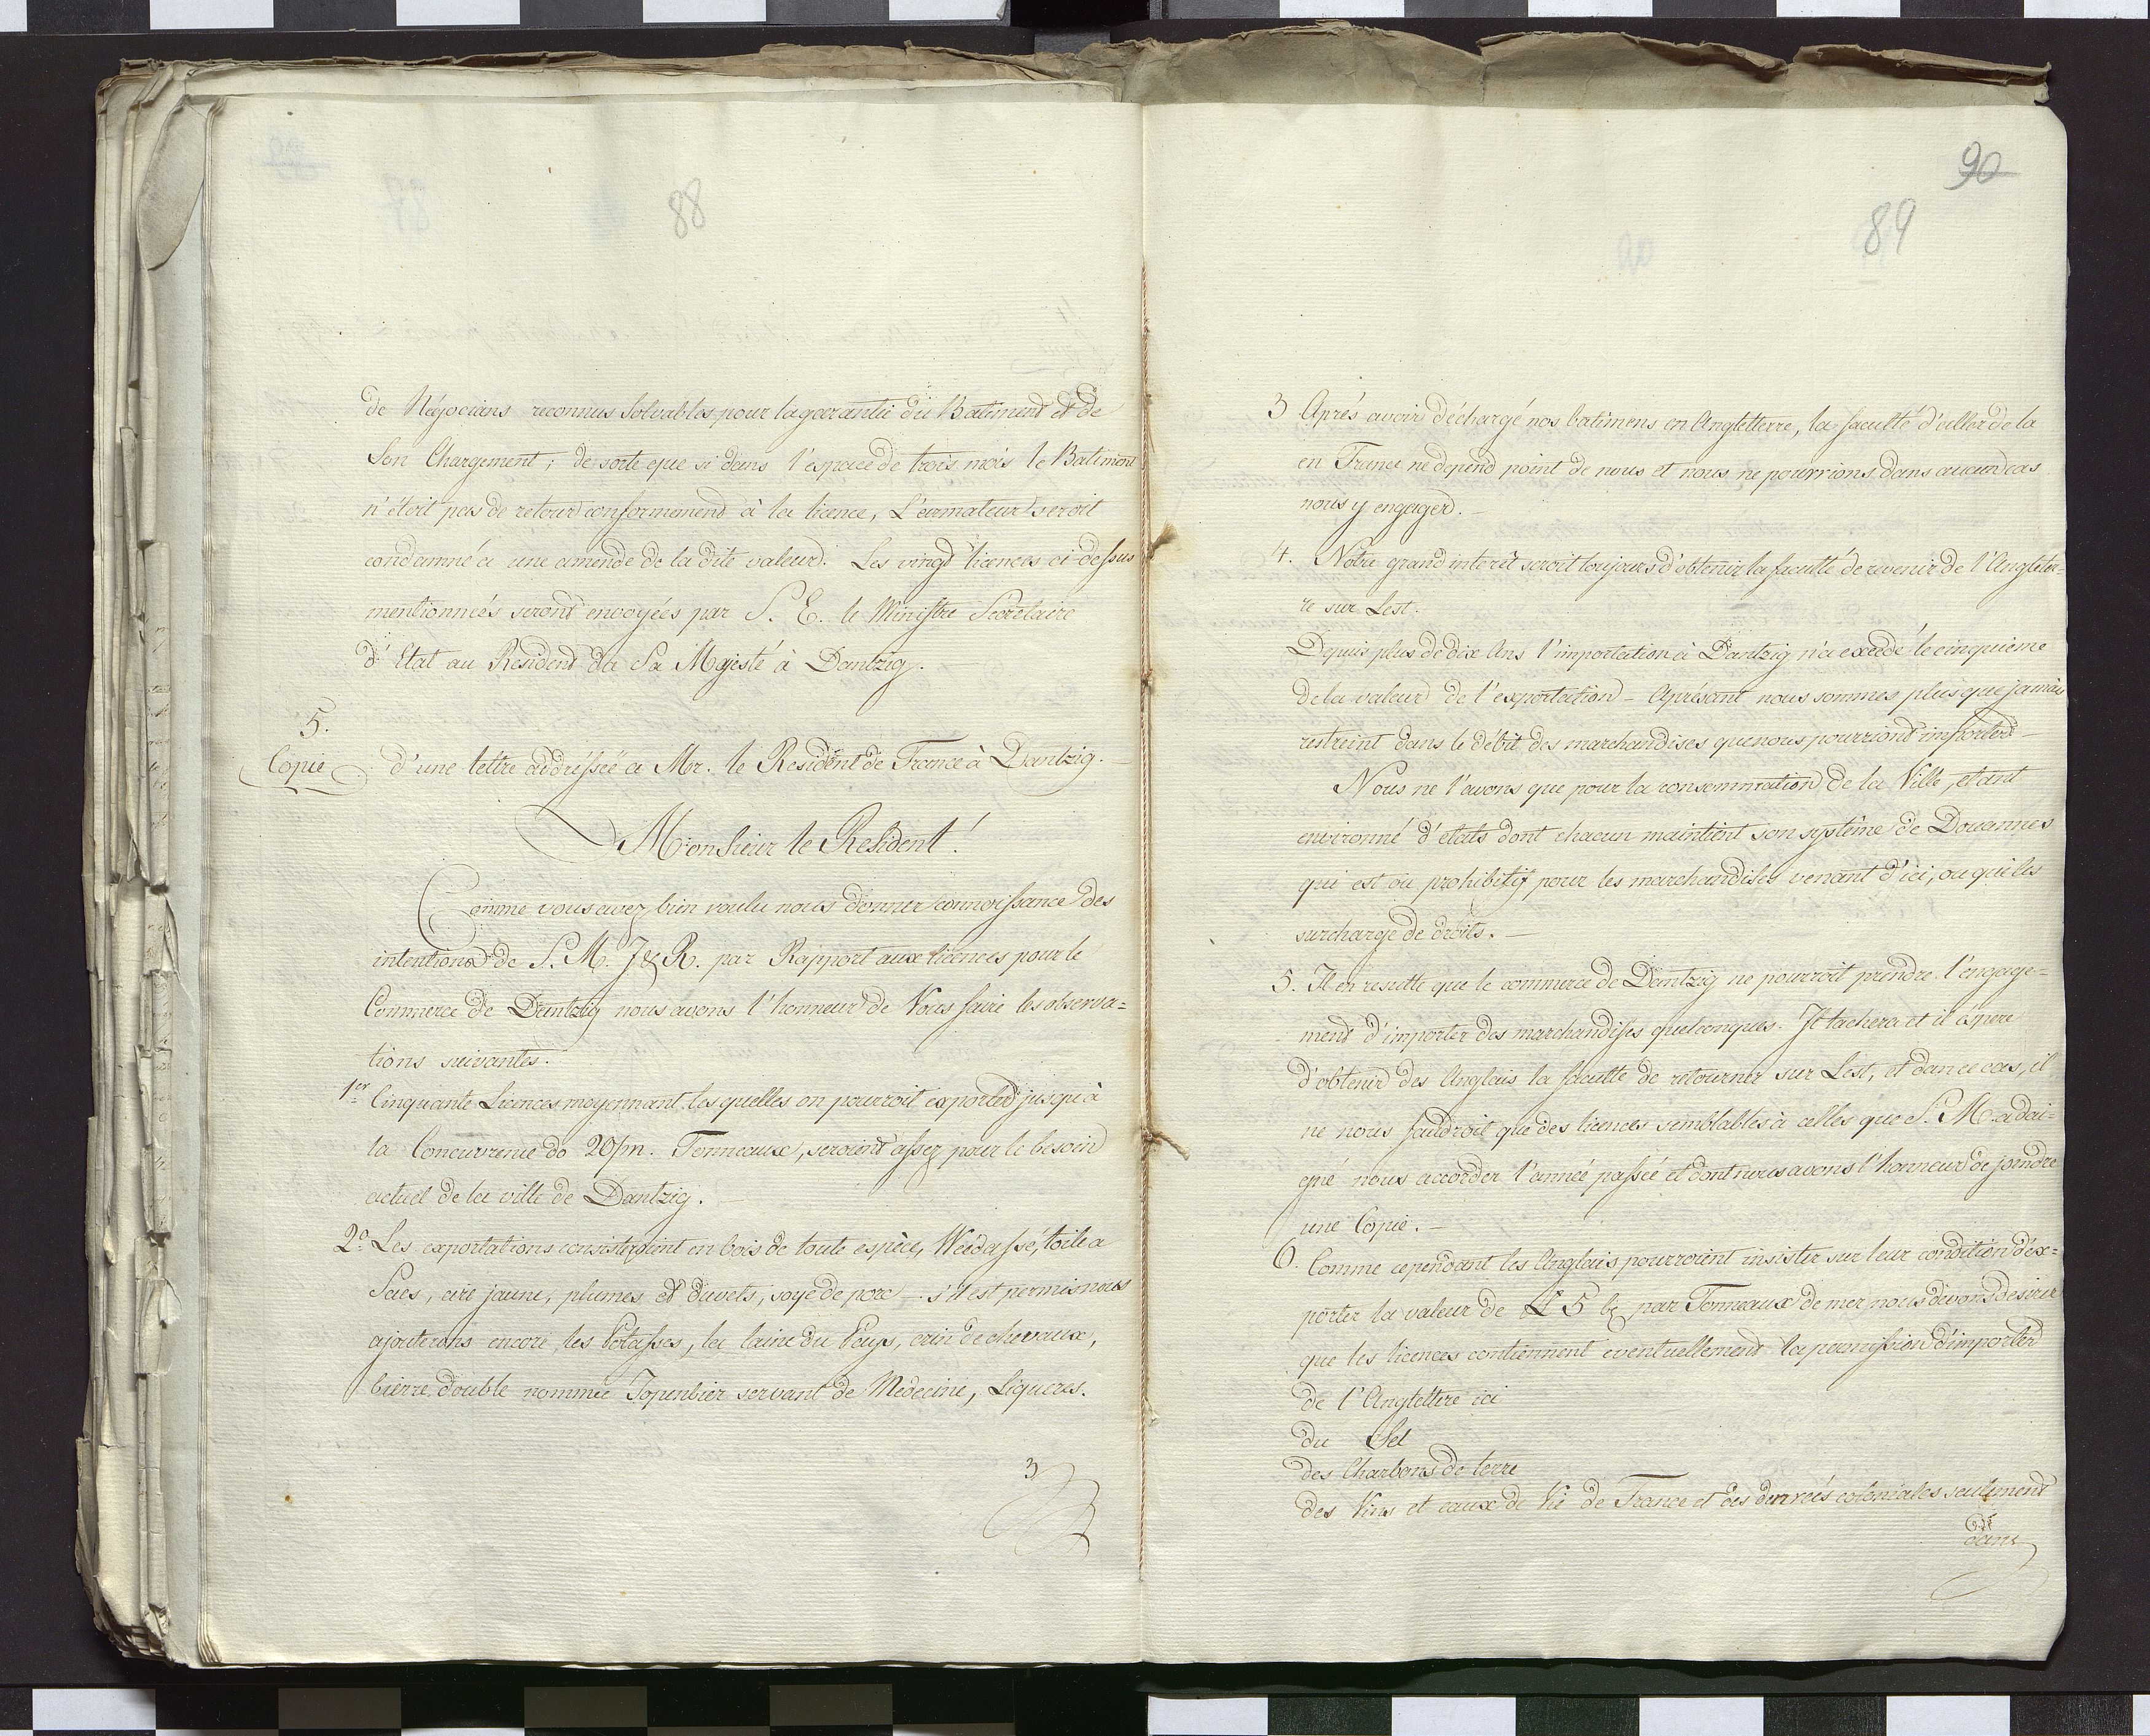 88
de Négocians reconnus solvables pour la garantie du Batiment et de
Son Chargement; de sorte que si dans l'espace de trois mois le Batiment
n'étoit pas de retour conformement à la licence, L'armateur seroit
condamné a une amende de la dite valeur. Les vingt licences ci-dessus
mentionnées seront envoyées par S. E. le Ministre Secretaire
d'Etat au Resident da Sa Majesté à Dantzig.
5.
Copie d'une lettre addressée a Mr. le Resident de France à Dantzig.
Monsieur le Resident!
Comme vous avez bien voulu nous donner connoissance des
intentions de S. M. J & R. par Rapport aux licences pour le
Commerce de Dantzig nous avons l'honneur de Vous faire les observa=
tions suivantes.
1er Cinquante Licences moyennant lesquelles on pourroit exporter jusqu'à
la Concurrence de 20/m. Tonneaux, seroient assez pour le besoin
actuel de la ville de Dantzig. —
2o Les exportations consisteroient en bois de toute espèce, Weedasse, toile a
Sacs, cire jaune, plumes et duvets, soye de porc — s'il est permis nous
ajouterons encore, les Potasses, la laine du Pays, crin de chevaux,
bierre double nommée Jopenbier servant de Medecine, Liqueres.
3
90
89
3 Après avoir déchargé nos batimens en Angletterre, la faculté d'aller de la
en France ne depend point de nous et nous ne pourrions dans aucun cas
nous y engager. —
4. Notre grand interêt seroit toujours d'obtenir la faculté de revenir de l'Angleter=
re sur Lest.
Depuis plus de dix Ans l'importation à Dantzig n'a excedé le cinquieme
de la valeur de l'exportation — Apresant nous sommes plus que jamais
restreint dans le débit des marchandises que nous pourriont importer —
Nous ne l'avons que pour la consommation de la Ville, etant
environné d'etats dont chacun maintient son système de Douannes
qui est ou prohibitif pour les marchandises venant d'ici, ou qui les
surcharge de droits. —
5. Il en resulte que le commerce de Dantzig ne pourroit prendre l'engage=
ment d'importer des marchandises quelconques. Il tachera et il espere
d'obtenir des Anglais la faculté de retourner sur Lest, et dan ce cas, il
ne nous faudroit que des licences semblables à celles que S. M. a dai=
gné nous accorder l'année passée et dont nous avons l'honneur de joindre
une Copie. —
6. Comme cependant les Anglais pourroient insister sur leur condition d'ex=
porter la valeur de 5 par Tonneaux de mer, nous devons desirer
que les licences contiennent eventuellement la permission d'importer
de l'Angletere ici
du Sel
des Charbons de terre
des Vins et eaux de Vie de France et des denrées coloniales seulement
dans